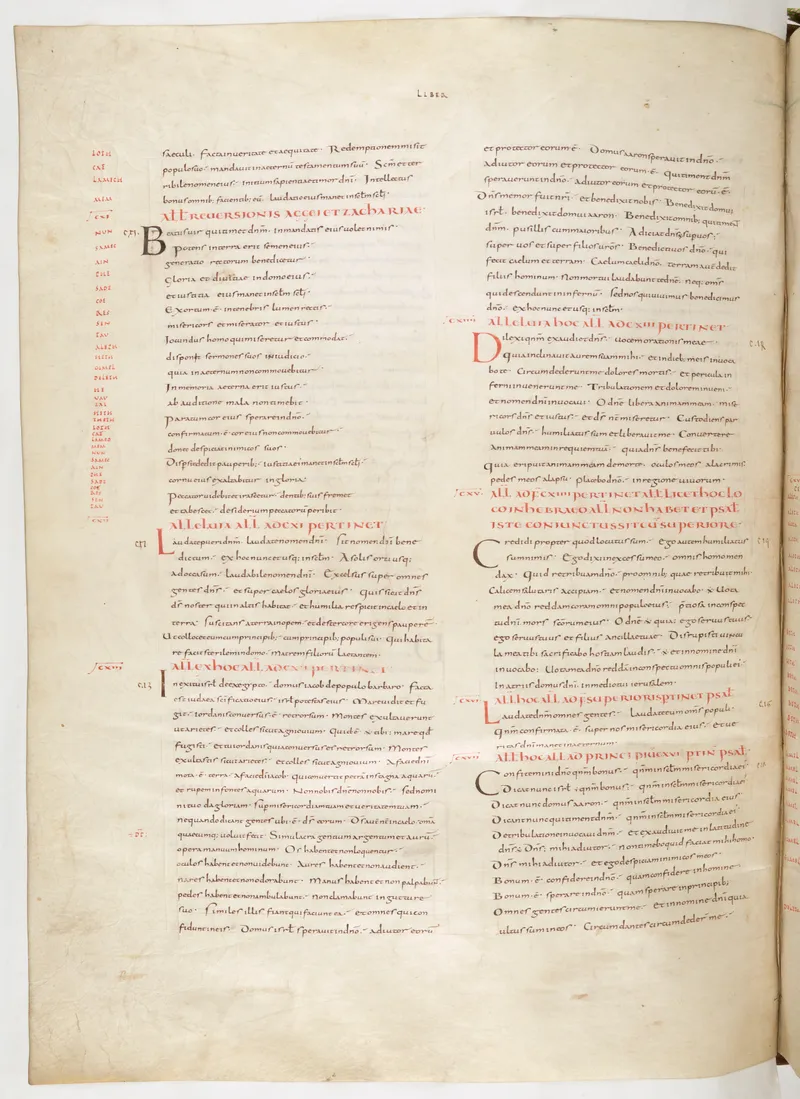 LIBER
saeculi · Facta in ueritate et aequitate · Redemptionem misit
populo suo · mandauit in aeternũ testamentum suũ · Scm̃ et ter
ribile nomen eius · initium sapientiae timor dnĩ · Intellectus
bonus omnib; facientib; eũ · laudatio eius manet in sc̃lm sc̃li ·
ALL REUERSIONIS AGGEI ET ZACHARIAE
Beatus uir qui timet dnm̃ · in mandatis eius uolet nimis ·
Potens in terra erit semen eius ·
generatio rectorum benedicetur ·
Gloria et diuitiae in domo eius ·
et iustitia eius manet in sc̃lm sc̃li ·
Exortum ẽ in tenebris lumen rectis ·
misericors et miserator et iustus ·
Iocundus homo qui miseretur et commodat ·
disponit sermones suos in iudicio ·
quia in aeternum non commouebitur ·
In memoria aeterna erit iustus ·
ab auditione mala non timebit ·
Paratum cor eius sperare in dnõ ·
confirmatum ẽ cor eius non commouebitur ·
donec despiciat inimicos suos ·
Dispsit dedit pauperib; iustitia eius manet in sc̃lm sc̃li ·
cornu eius exaltabitur in gloria ·
Peccator uidebit et irascetur · dentib; suis fremet
et tabescet · desiderium peccatorũ peribit ·
ALLELUIA ALL AD CXI PERTINET
Laudate pueri dnm̃ · laudate nomen dnĩ · Sit nomen dnĩ bene
dictum · ex hoc nunc et usq; in sc̃lm · A solis ortu usq;
ad occasum · laudabile nomen dnĩ · Excelsus super omnes
gentes dns̃ · et super caelos gloria eius · Quis sicut dns̃
ds̃ noster qui in altis habitat · et humilia respicit in caelo et in
terra · Suscitans a terra inopem · et de stercore erigens pauperẽ ·
Ut collocet eum cum principib; cum principib; populi sui · Qui habita
re facit sterilem in domo · matrem filiorũ laetantem ·
ALL EX HOC ALL AD CXI PERTINET
In exitu isrl̃ de aegypto · domus iacob de populo barbaro · Facta
est iudaea sc̃ificatio eius · isrl̃ potestas eius · Mare uidit et fu
git · iordanis conuersus ẽ retrorsum · Montes exultauerunt
ut arietes · et colles sicut agni ouium · Quid ẽ tibi mare qđ
fugisti · et tu iordanis quia conuersus es retrorsum · Montes
exultastis sicut arietes · et colles sicut agni ouium · A facie dnĩ
mota ẽ terra · a facie dĩ iacob · Qui conuertit petrã in stagna aquarũ ·
et rupem in fontes aquarum · Non nobis dnẽ non nobis · sed nomi
ni tuo da gloriam · Sup̃ misericordia tua et ueritate tua ·
nequando dicant gentes ubi ẽ ds̃ eorum · Ds̃ autẽ nr̃ in caelo · om̃a
quaecumq; uoluit fecit · Simulacra gentium argentum et aurũ ·
opera manuum hominum · Os habent et non loquentur ·
oculos habent et non uidebunt · Aures habent et non audient ·
nares habent et non odorabunt · Manus habent et non palpabũt ·
pedes habent et non ambulabunt · non clamabunt in gutture
suo · Similes illis fiant qui faciunt ea · et omnes qui con
fidunt in eis · Domus isrl̃ sperauit in dnõ · adiutor eorũ
et protector eorum ẽ · Domus aaron sperauit in dnõ ·
adiutor eorum et protector eorum ẽ · Qui timent dnm̃
sperauerunt in dnõ · adiutor eorum et protector eorũ ẽ ·
Dns̃ memor fuit nr̃i · et benedixit nobis · Benedixit domui
isrl̃ · benedixit domui aaron · Benedixit omnib; qui timent
dnm̃ · pusillis cum maiorib; · Adiciat dns̃ sup̃ uos ·
super uos et super filios uestros · Benedicti uos dnõ · qui
fecit caelum et terram · Caelum caeli dnõ · terram autẽ dedit
filiis hominum · Non mortui laudabunt te dnẽ · neq; om̃s
qui descendunt in infernũ · Sed nos qui uiuimus benedicimus
dnõ · ex hoc nunc et usq; in sc̃lm ·
CXIIII ALLELUIA HOC ALL AD CXIII PERTINET
Dilexi qnm̃ exaudiet dns̃ · uocem orationis meae ·
Quia inclinauit aurem suam mihi · et in dieb; meis inuoca
bo te · Circumdederunt me dolores mortis · et pericula in
ferni inuenerunt me · Tribulationem et dolorem inueni ·
et nomen dnĩ inuocaui · O dnẽ libera animam meam · mise
ricors dns̃ et iustus · et ds̃ nr̃ miseretur · Custodiens par
uulos dns̃ · humiliatus sum et liberauit me · Conuertere
anima mea in requiem tuã · quia dns̃ benefecit tibi ·
Quia eripuit animam meam de morte · oculos meos a lacrimis ·
pedes meos a lapsu · placebo dnõ · in regione uiuorum ·
CXV ALL AD CXIIII PERTINET ALL LICET HOC LO
CO IN HEBRAEO ALL NON HABET ET PSAL
ISTE CONIUNCTUS SIT CU SUPERIORE ·
Credidi propter quod locutus sum · Ego autem humiliatus
sum nimis · Ego dixi in excessu meo · omnis homo men
dax · Quid retribuam dnõ · pro omnib; quae retribuit mihi ·
Calicem salutaris accipiam · et nomen dnĩ inuocabo · Uota
mea dnõ reddam coram omni populo eius · p̃tiosa in conspec
tu dnĩ · mors sc̃orum eius · O dnẽ quia ego seruus tuus ·
ego seruus tuus et filius ancillae tuae · Dirupisti uincu
la mea tibi sacrificabo hostiam laudis · et in nomine dnĩ
inuocabo · Uota mea dnõ reddã in conspectu omnis populi ei ·
In atriis domus dnĩ · in medio tui ierusalem ·
CXVI ALL HOC ALL AD SUPERIORES PTINET PSAL
Laudate dnm̃ omnes gentes · laudate eum om̃s populi ·
Qnm̃ confirmata ẽ super nos misericordia eius · et ue
ritas dnĩ manet in aeternum ·
CXVII ALL HOC ALL AD PRINCIPIU CXVI PTIN PSAL
Confitemini dnõ qnm̃ bonus · qnm̃ in sc̃lm misericordia ei ·
Dicat nunc isrl̃ · qnm̃ bonus · qnm̃ in sc̃lm misericordia ei ·
Dicat nunc domus aaron · qnm̃ in sc̃lm misericordia eius ·
Dicant nunc qui timent dnm̃ · qnm̃ in sc̃lm misericordia eius
De tribulatione inuocaui dnm̃ · et exaudiuit me in latitudine
dns̃ · Dns̃ mihi adiutor · non timebo quid faciat mihi homo ·
Dns̃ mihi adiutor · et ego despiciam inimicos meos ·
Bonum ẽ confidere in dnõ · quam confidere in homine ·
Bonum ẽ sperare in dnõ · quam sperare in principib;
Omnes gentes circumierunt me · et in nomine dnĩ quia
ultus sum in eos · Circumdantes circumdeder̃ me ·